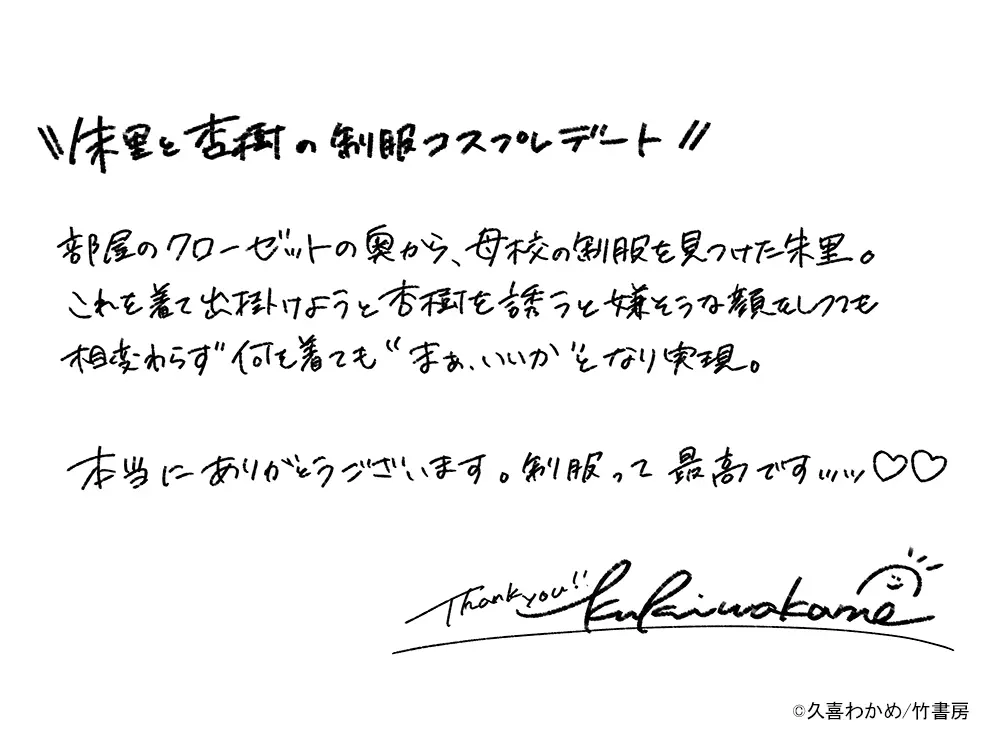 \\朱里と杏樹の制服コスプレデート//
部屋のクローゼットの奥から、母校の制服を見つけた朱里。
これを着て出掛けようと杏樹を誘うと嫌そうな顔をしつても
相変わらず"何を着ても"まぁ、いいか"となり実現。
本当にありがとうございます。制服って最高ですッッ♡♡
Thank you!! kukiwakame
©久喜わかめ/竹書房